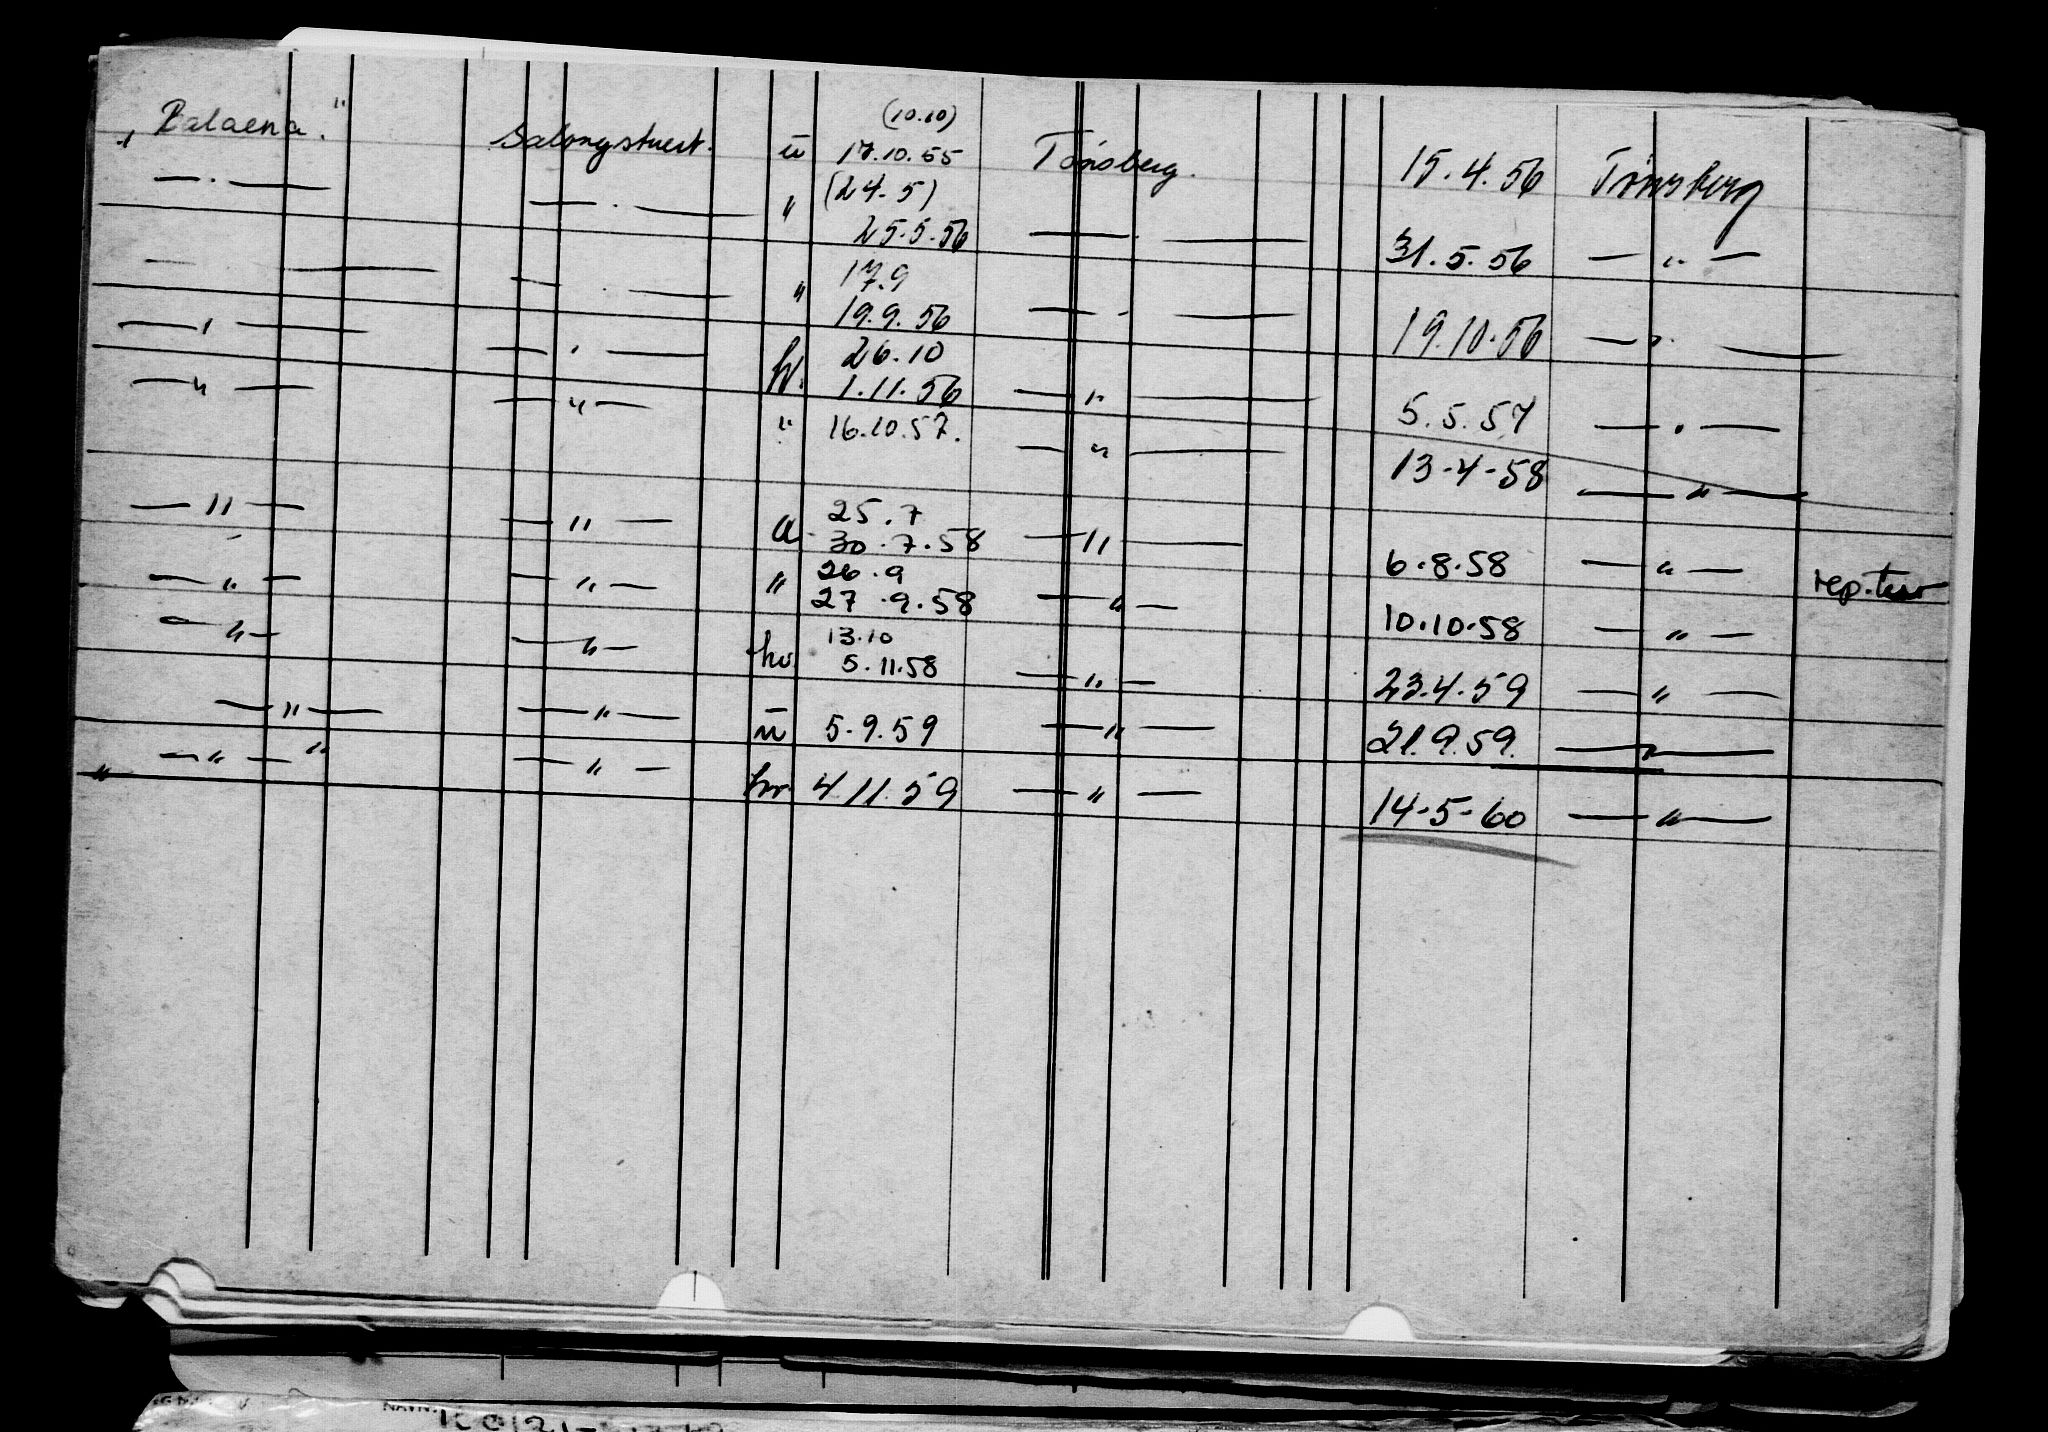 „Balaena." Salongstuert. u (10.10) 17.10.55 Tönsberg. 15.4.56 Tönsberg
— . — — . — " (24.5) 25.5.56 — . — 31.5.56 — " —
— — — . — " 17.9 19.9.56 — . — 19.10.56 — " —
— ' — — ' — hv. 26.10 1.11.56 — " — 5.5.57 — . —
— " — — " — " 16.10.57. — " — 13-4-58 — " —
— " — — " — a 25.7 30.7.58 — " — 6.8.58 — " —
— " — — " — " 26.9 27.9.58 — " — 10.10.58 — " —
— " — — " — hv. 13.10 5.11.58 — " — 23.4.59 — " —
— " — — " — u 5.9.59 — " — 21.9.59. — " —
„ — " — " — " — hv. 4.11.59 — " — 14-5-60 — " —